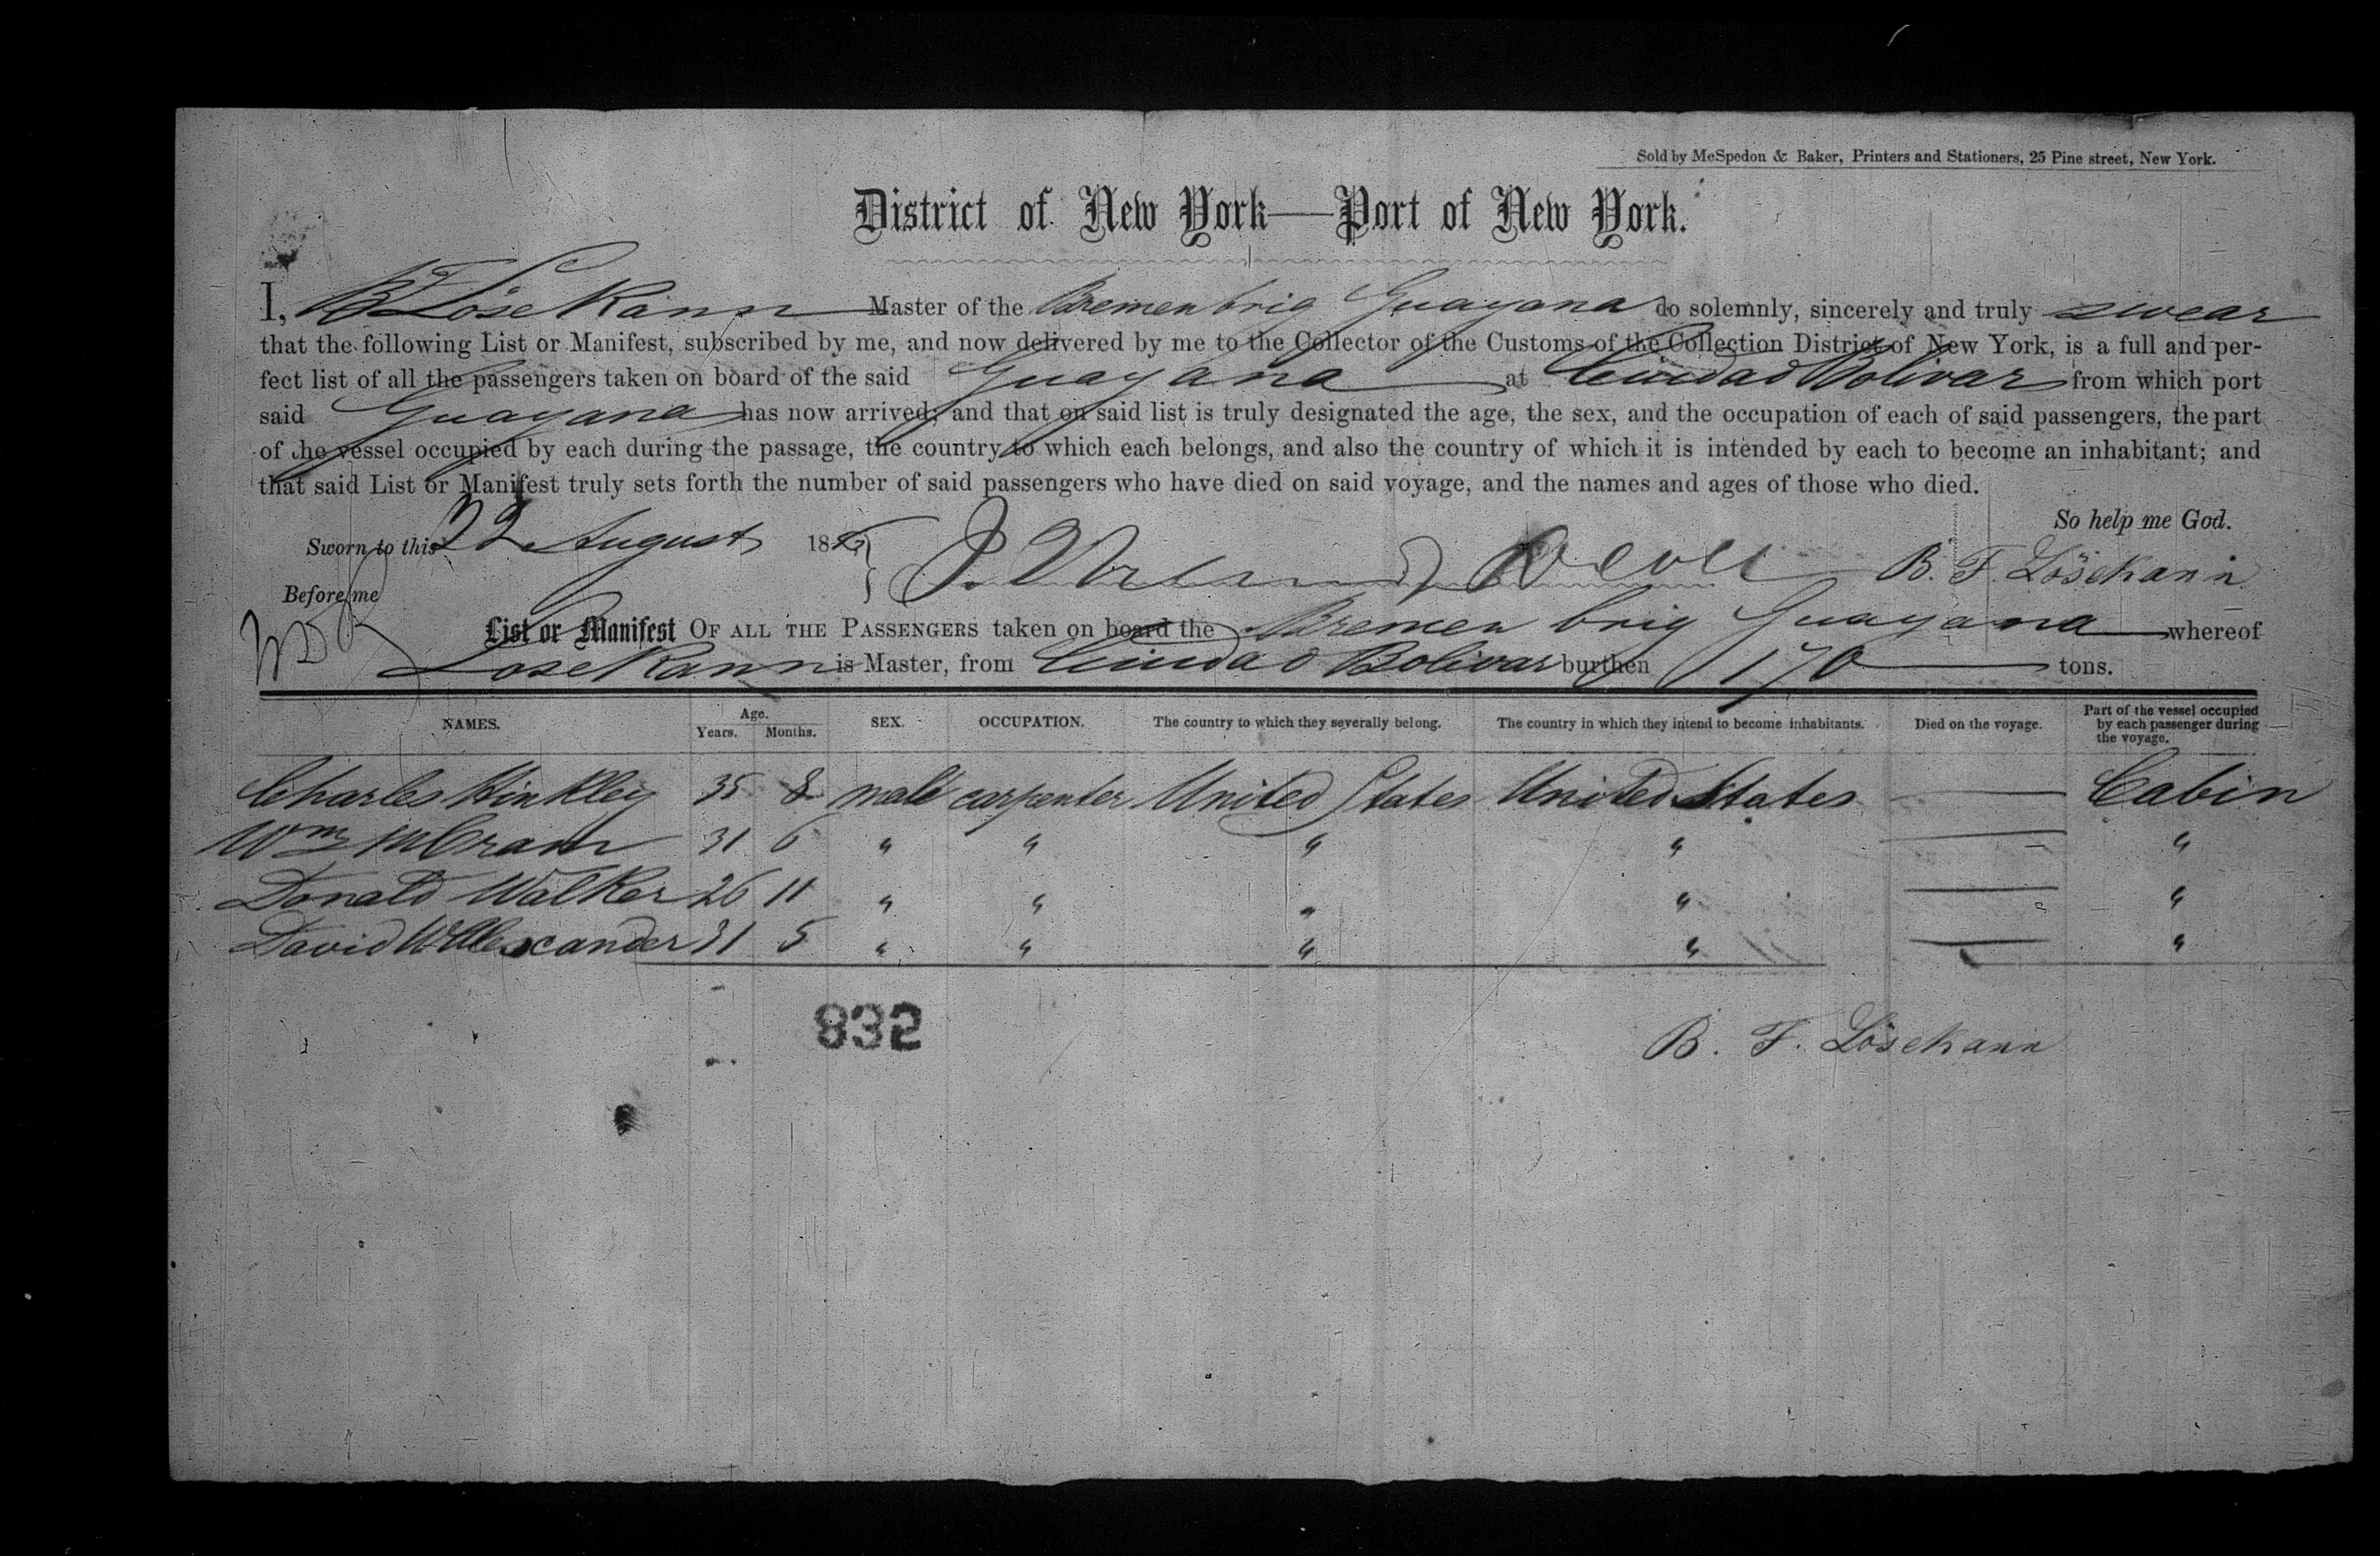 Sold by McSpedon & Baker, Printers and Stationers, 25 Pine street, New York.
District of New York—Port of New York.
I, B F Lösekann Master of the Bremen brig Guayana do solemnly, sincerely and truly swear
that the following List or Manifest, subscribed by me, and now delivered by me to the Collector of the Customs of the Collection District of New York, is a full and per-
fect list of all the passengers taken on board of the said Guayana at Ciudad Bolivar from which port
said Guayana has now arrived; and that on said list is truly designated the age, the sex, and the occupation of each of said passengers, the part
of the vessel occupied by each during the passage, the country to which each belongs, and also the country of which it is intended by each to become an inhabitant; and
that said List or Manifest truly sets forth the number of said passengers who have died on said voyage, and the names and ages of those who died.
So help me God.
Sworn to this 22 August 18
Before me
B. F. Lösekann
List or Manifest OF ALL THE PASSENGERS taken on board the Bremen brig Guayana whereof
Losekann is Master, from Ciudad Bolivar burthen 170 tons.
NAMES. Age. Years. Months. SEX. OCCUPATION. The country to which they severally belong. The country in which they intend to become inhabitants. Died on the voyage. Part of the vessel occupied by each passenger during the voyage.
Charles Hinkley 35 8 male carpenter United States United States — Cabin
Wm McCram 31 6 " " " " — "
Donald Walker 26 11 " " " " — "
David W Alexcander 31 5 " " " " — "
832
B. F. Lösekann